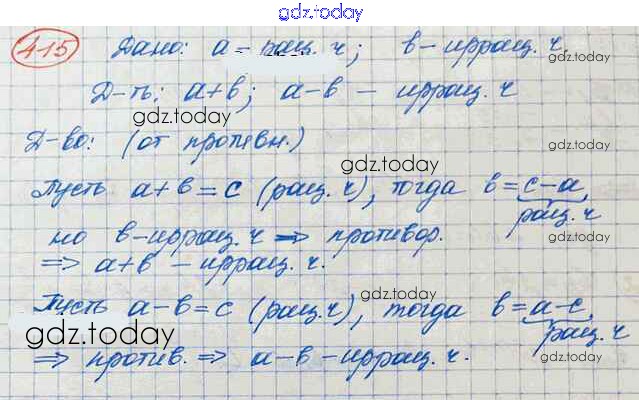 gdz.today
415 Дано: а - рац. ч; в - иррац. ч.
gdz.today
Д-ть: а+в; а-в - иррац. ч
gdz.today
Д-во: (от противн.)
gdz.today
gdz.today
Пусть а+в=с (рац. ч), тогда в=с-а,
рац. ч
но в-иррац. ч ⇒ противор.
gdz.today
⇒ а+в - иррац. ч.
Пусть а-в=с (рац.ч), тогда в=а-с,
gdz.today
gdz.today
рац. ч
⇒ против. ⇒ а-в - иррац. ч.
gdz.today